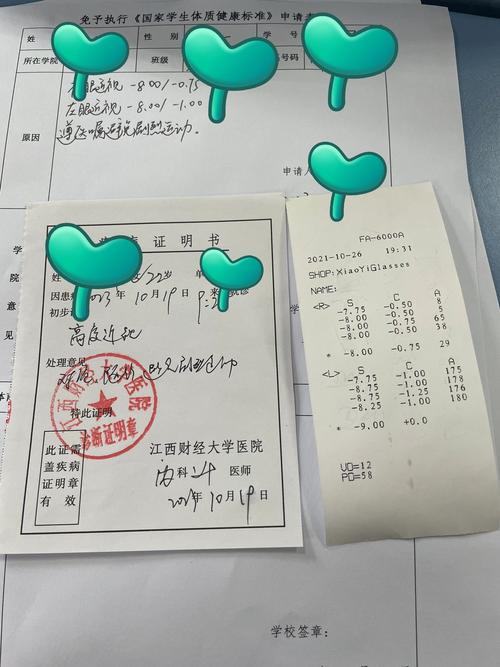 免予执行《国家学生体质健康标准》申请表
姓
性别
学号
所在学院
班级
号
原因
右眼近视 -8.00/-0.75
左眼近视 -8.00/-1.00
遵医嘱避免剧烈运动。
申请人
学
院
意
见
证明书
姓
22岁
年
因患
2023年10月19日
来
诊
初步
高度近视
处理意见
特此证明
江西财经大学医院
诊断证明章
此证需
盖疾病
证明章
有效
江西财经大学医院
内科
医师
2023年10月19日
FA-6000A
2021-10-26 19:31
SHOP:XiaoYiGlasses
NAME:
<R> S C A
-7.75 -0.50 8
-8.00 -0.50 5
-8.00 -0.75 65
-8.00 -0.50 38
* -8.00 -0.75 29
<L> S C A
-7.75 -1.00 175
-8.00 -1.00 178
-8.00 -1.25 176
-8.25 -1.00 180
* -9.00 +0.0
VD=12
PD=58
学校签章：